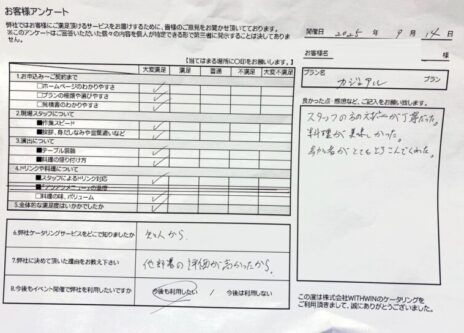 お客様アンケート
弊社ではお客様にご満足頂けるサービスをお届けするために、皆様のご意見をお聞かせ頂いております。
※このアンケートはご回答いただいた個々の内容を個人が特定できる形で第三者に開示することは決してありません。
【当てはまる場所に〇印をお願いします。】
大変満足 満足 普通 不満足 大変不満足
1.お申込み～ご契約まで
■ホームページのわかりやすさ
■プランの種類や選びやすさ
■見積書のわかりやすさ
2.現場スタッフについて
■作業スピード
■挨拶、身だしなみや言葉遣いなど
3.演出について
■テーブル装飾
■料理の盛り付け方
4.ドリンクや料理について
■スタッフによるドリンク対応
■料理の味、ボリューム
5.全体的な満足度はいかがでしたか
6.弊社ケータリングサービスをどこで知りましたか
知人から
7.弊社に決めて頂いた理由をお教え下さい
他料書の評価が高かったから。
8.今後もイベント開催で弊社を利用したいですか
今後も利用したい / 今後は利用しない
開催日 2025 年 9 月 14 日
お客様名
様
プラン名
カジュアル プラン
良かった点・感想など、ご記入をお願い致します。
スタッフの方の対応が丁寧だった。
料理が美味しかった。
参加者がとてもよろこんでくれた。
この度は株式会社WITHWINのケータリングを
ご利用頂きまして、誠にありがとうございました。